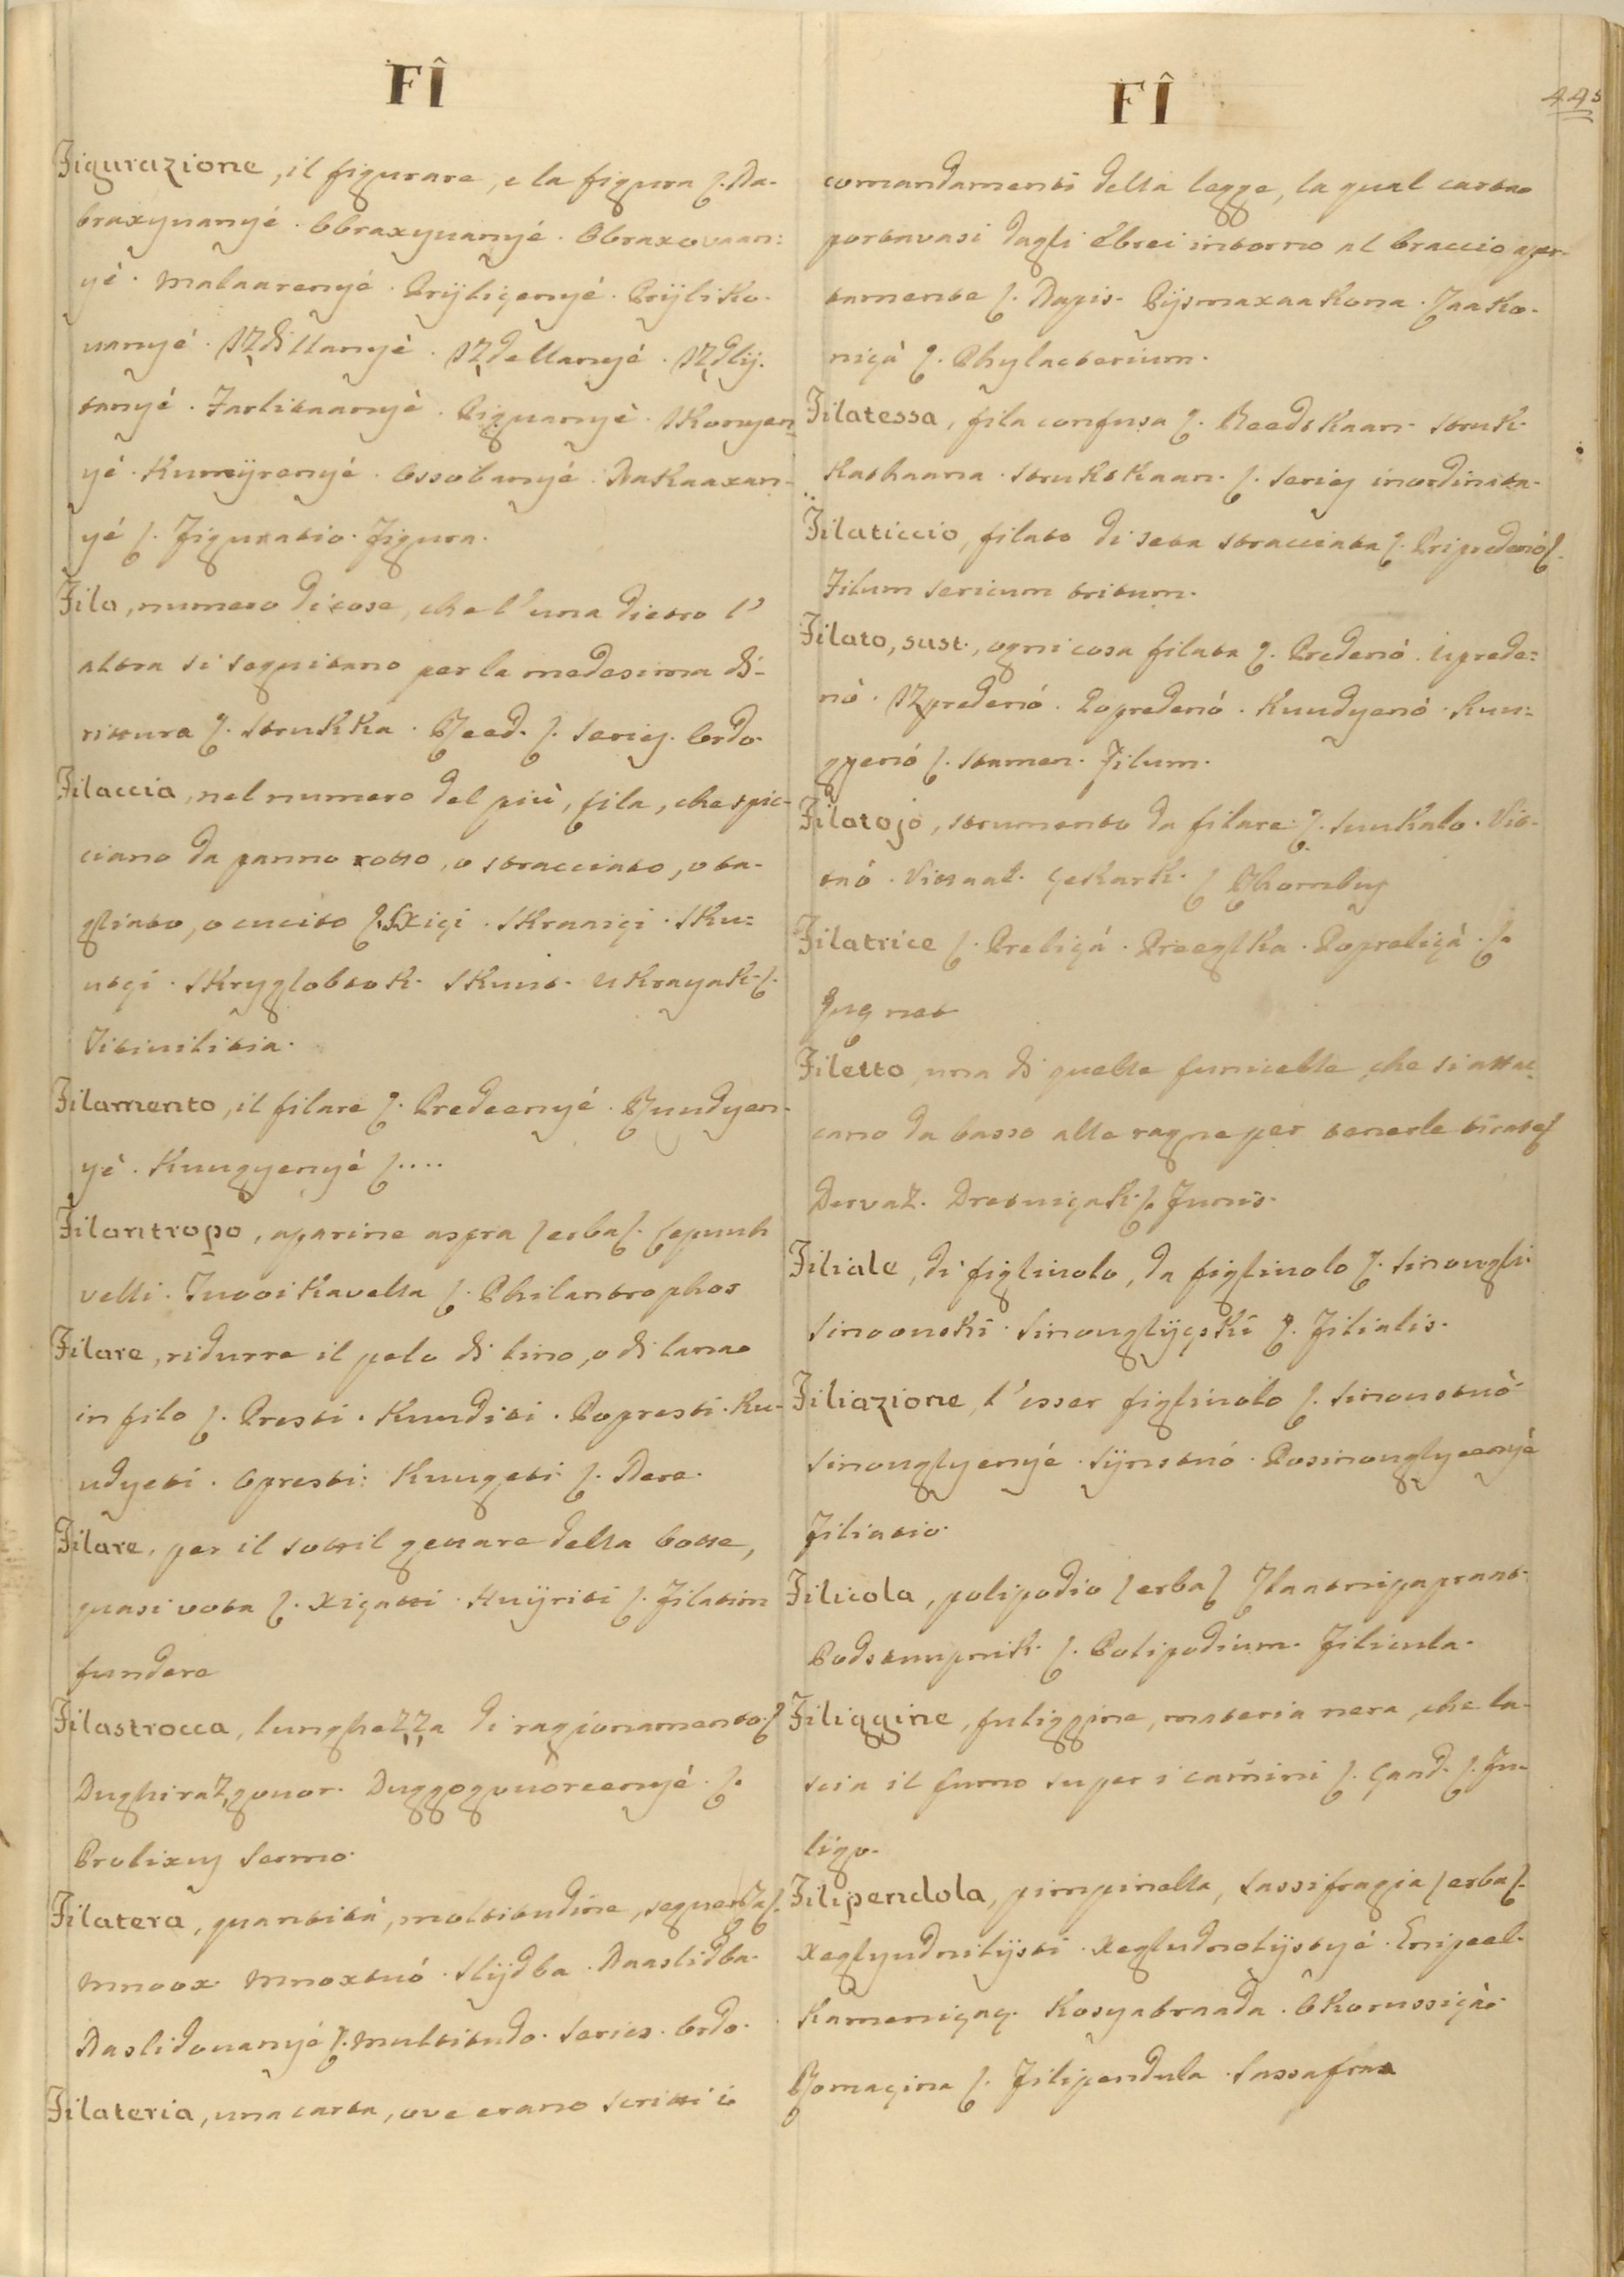 FÎ
Figurazione, il figurare, e la figura ʃ. Na-
braxyvanyé. Obraxyvanyé. Obraxovaan=
yé. Malaarenyé. Prÿliçenyé. Prÿliko-
vanyé. Izdillanyé. Izdellanyé. Izdlÿ-
tanyé. Farlitaanyé. Piguanyé. Ikonyen-
yé. Kumÿrenyé. Ossobanyé. Nakaaxan-
yé ʃ. Figuratio. Figura.
Fila, numero di cose, che l'una dietro l'
altra si seguitano per la medesima di-
rittura ʃ. Strukka. Reed. ʃ. Series. Ordo.
Filaccia, nel numero del più, fila, che spic-
ciano da panno rotto, o stracciato, o ta-
gliato, o cucito ʃ. Sxiçi. Skraaiçi. Sku=
utçi. Skryglobtok. Skuut. Ukrayak. ʃ.
Vitivilitia.
Filamento, il filare ʃ. Predeenyé. Ruudyen-
yé. Kuugyenyé ʃ....
Filantropo, aparine aspra ʃerbaʃ. Çepuuh
velli. Tuooi kavella ʃ. Philantrophos
Filare, ridurre il pelo di lino, o di lana
in filo ʃ. Presti. Kuuditi. Popresti. Ku-
udyeti. Opresti. Kuugeti ʃ. Nere.
Filare, per il sottil gettare della botte,
quasi vota ʃ. Xiçatti. Kuÿriti ʃ. Filatim
fundere
Filastrocca, lunghezza di ragionamento ʃ
Dughirazgovor. Duggogovoreenyé. ʃ.
Prolixus sermo.
Filatera, quantità, moltitudine, sequenza ʃ.
Mnoox. Mnoxtvó. Slÿdba. Naaslidba.
Naslidovanyé ʃ. Multitudo. Series. Ordo.
Filateria, una carta, ove erano scritti i
FÎ
445
comandamenti della legge, la qual carta
portavasi dagli Ebrei intorno al braccio aper-
tamente ʃ. Napis. Pÿsmaxaakona. Zaako-
niçà ʃ. Phylacterium.
Filatessa, fila confusa ʃ. Reedskaan. Struk-
kashaana. Strukskaan. ʃ. Series inordinata.
Filaticcio, filato di seta stracciata ʃ. Pripredenó ʃ.
Filum sericum tritum.
Filato, sust., ogni cosa filata ʃ. Predenó. Uprede=
nó. Izpredenó. Popredenó. Kuudyenó. Kuu=
gyenó ʃ. Stamen. Filum.
Filatojo, strumento da filare ʃ. Suukalo. Vit-
laó. Vitaal. Çekark. ʃ Rhombus
Filatrice ʃ. Preliçá. Preeglka. Popreliçà. ʃ.
Filetto, una di quelle funicelle, che si attac-
cano da basso alle ragne per tenerle tirate ʃ
Dervaz. Dretuiçak. ʃ. Funis.
Filiale, di figliuolo, da figliuolo ʃ. Sinouglii
Sinoouski. Sinouglÿçski ʃ. Filialis.
Filiazione, l'esser figliuolo ʃ. Sinoustuò
Sinouglyenyé. Sÿnstuó. Posinouglyeenyé
Filiatio.
Filicola, polipodio ʃerbaʃ Zlaatnipapraat.
Podstuupnik. ʃ. Polipodium. Filicula.
Filiggine, fuliggine, materia nera, che la-
scia il fumo su per i camini ʃ. Çaad. ʃ. Fu-
ligo.
Filipendola, pimpinella, sassifragia ʃerbaʃ.
Xeglyudnilÿsti. Xegludnolÿstyé. Enipeel.
Kameniçaç. Kosyabraada. Okorussiçà.
Romaçina ʃ. Filipendula. Sassafraa